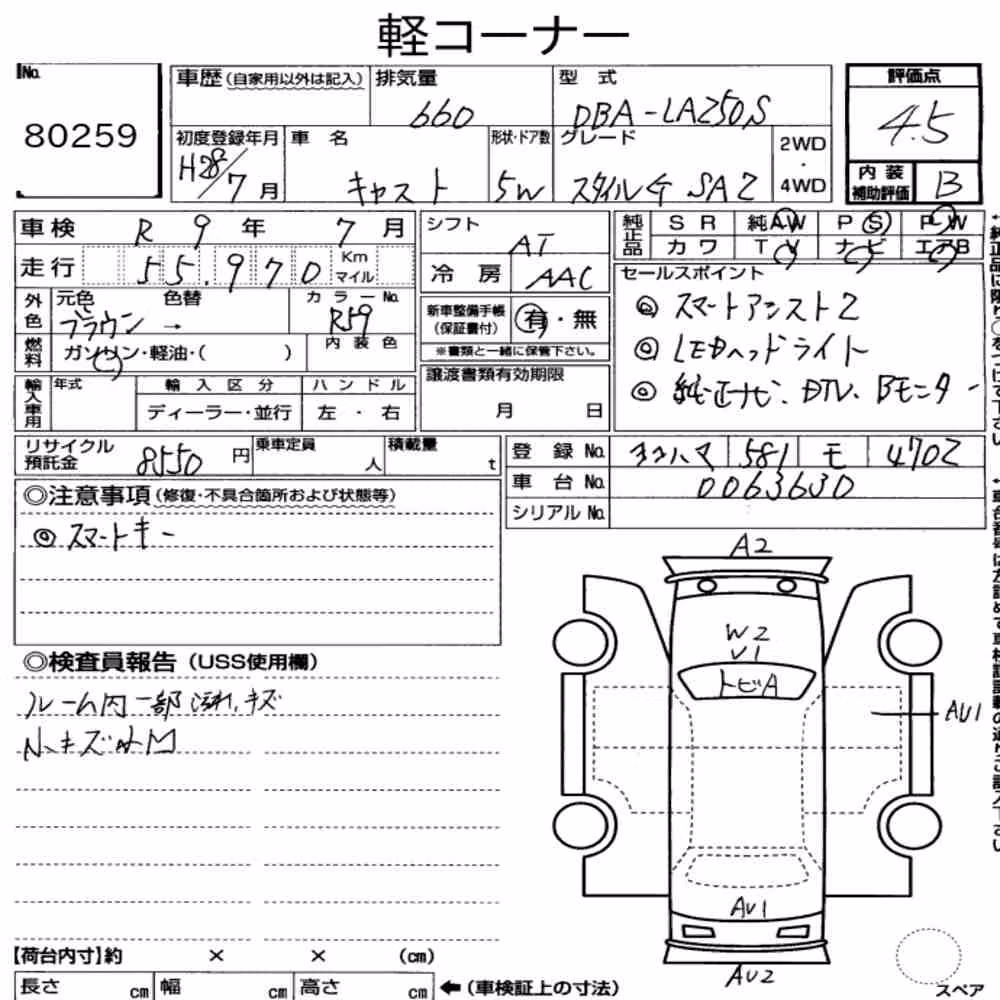 軽コーナー
No. 80259
車歴(自家用以外は記入) 排気量 660 型 式 DBA-LA250S
初度登録年月 H28/7月 車 名 キャスト 形状・ドア数 5W グレード スタイルG SA2 2WD ・ 4WD
評価点 4.5
内装補助評価 B
車検 R 9 年 7 月
走行 55.970 Km マイル
外色 元色 ブラウン → 色替 カラーNo. R59
燃料 ガソリン・軽油・( ) 内装色
輸入車用 年式 輸入区分 ハンドル
ディーラー・並行 左 ・ 右
シフト AT
冷房 AAC
新車整備手帳(保証書付) 有・無
※書類と一緒に保管下さい。
譲渡書類有効期限
月 日
純正品 SR 純AW PS PW
カワ TV ナビ エアB
セールスポイント
◎ スマートアシスト2
◎ LEDヘッドライト
◎ 純正ナビ、DTV、Bモニター
リサイクル預託金 8550 円 乗車定員 人 積載量 t
登録No. ヨコハマ 581 モ 4702
車台No. 0063630
シリアルNo.
◎注意事項(修復・不具合箇所および状態等)
◎ スマートキー
◎検査員報告(USS使用欄)
ルーム内一部汚れ、キズ
小キズ
A2
W2
V1
トビA
AU1
AU1
AU2
【荷台内寸】約 × × (cm)
長さ cm 幅 cm 高さ cm ←(車検証上の寸法)
スペア